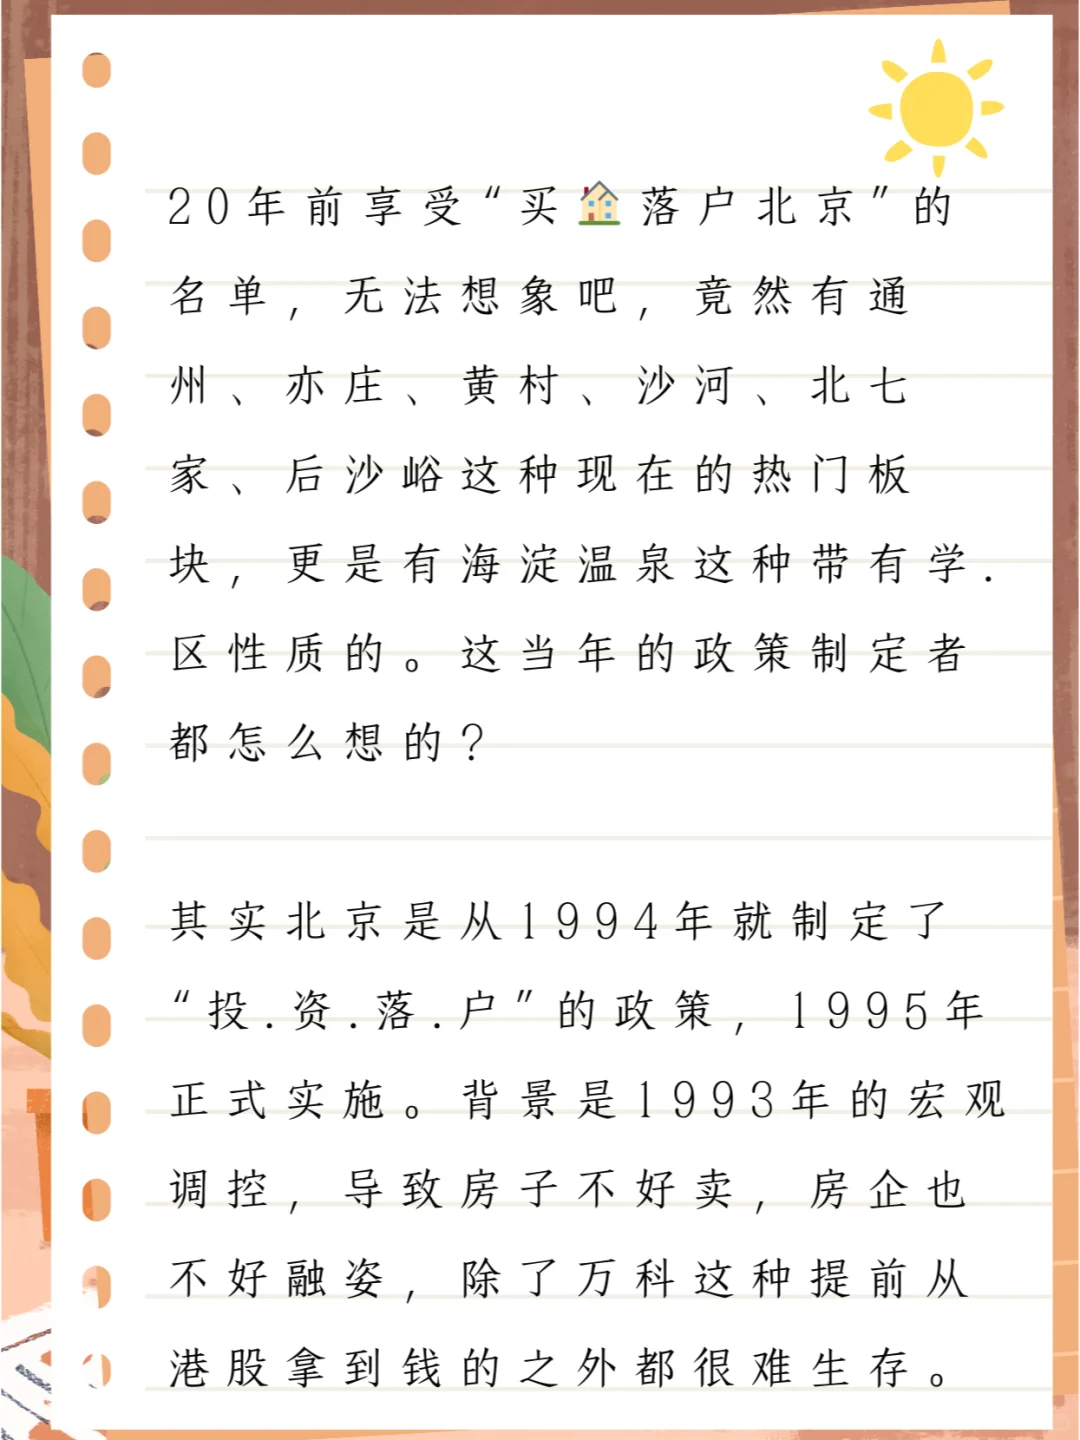 20年前享受“买🏠落户北京”的
名单，无法想象吧，竟然有通
州、亦庄、黄村、沙河、北七
家、后沙峪这种现在的热门板
块，更是有海淀温泉这种带有学.
区性质的。这当年的政策制定者
都怎么想的？
其实北京是从1994年就制定了
“投.资.落.户”的政策，1995年
正式实施。背景是1993年的宏观
调控，导致房子不好卖，房企也
不好融姿，除了万科这种提前从
港股拿到钱的之外都很难生存。